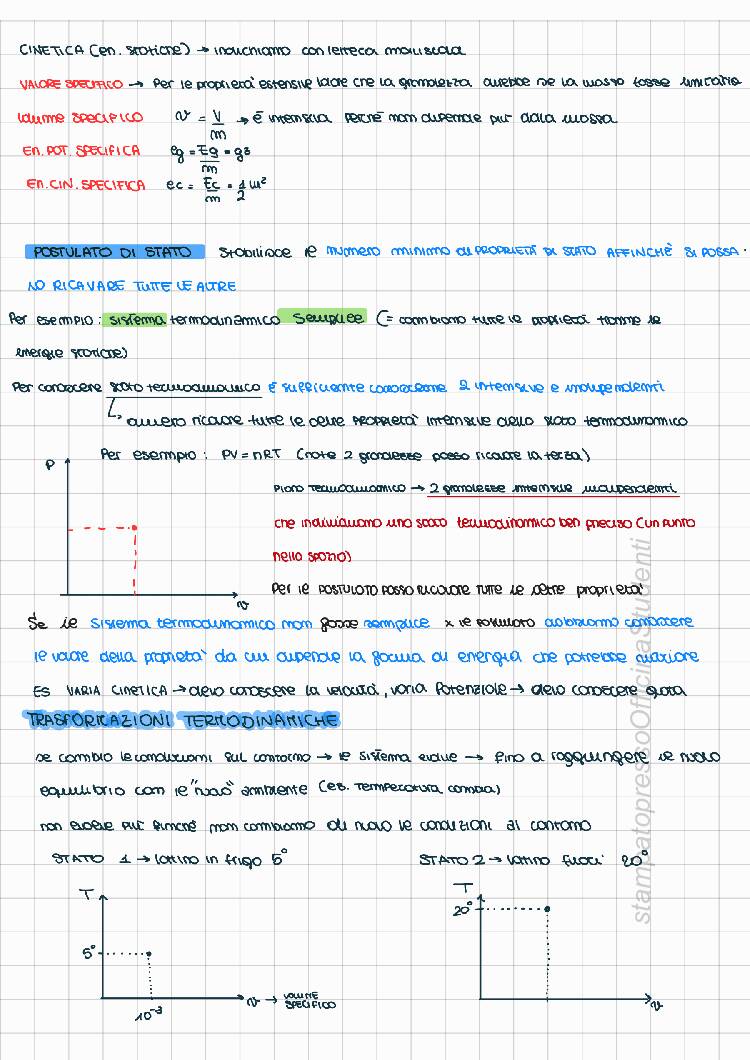 CINETICA (en. statiche) → indichiamo con lettera maiuscola
VALORE SPECIFICO → Per le proprietà estensive valore che la grandezza avrebbe se la massa fosse unitaria
Volume SPECIFICO v = V/m → è intensiva perché non dipende più dalla massa
EN. POT. SPECIFICA eg = Eg/m = gz
EN. CIN. SPECIFICA ec = Ec/m = 1/2 w²
POSTULATO DI STATO stabilisce il numero minimo di PROPRIETÀ DI STATO AFFINCHÈ SI POSSA-
NO RICAVARE TUTTE LE ALTRE
Per esempio: sistema termodinamico semplice (= cambiano tutte le proprietà tranne le
energie statiche)
Per conoscere stato termodinamico è sufficiente conoscerne 2 intensive e indipendenti
↳ ovvero ricavare tutte le altre PROPRIETÀ intensive dello stato termodinamico
Per esempio: PV = nRT (note 2 grandezze posso ricavare la terza)
P
Piano termodinamico → 2 grandezze intensive indipendenti
che individuano uno stato termodinamico ben preciso (un punto
nello spazio)
Per il POSTULATO POSSO RICAVARE TUTTE le altre proprietà
v
Se il sistema termodinamico non fosse semplice x il postulato dobbiamo conoscere
il valore della proprietà da cui dipende la forma di energia che potrebbe variare
ES VARIA CINETICA → devo conoscere la velocità, varia Potenziale → devo conoscere quota
TRASFORMAZIONI TERMODINAMICHE
se cambio le condizioni sul contorno → il sistema evolve → fino a raggiungere il nuovo
equilibrio con il "nuovo" ambiente (es. Temperatura cambia)
non evolve più finché non cambiamo di nuovo le condizioni al contorno
STATO 1 → lattina in frigo 5° STATO 2 → lattina fuori 20°
T T
20°
5°
v → VOLUME SPECIFICO v
10⁻³
stampatopressoOfficinaStudenti